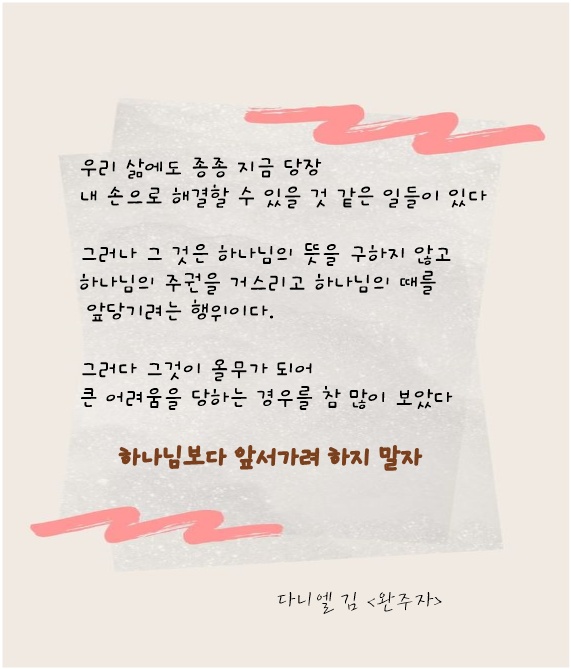 우리 삶에도 종종 지금 당장
내 손으로 해결할 수 있을 것 같은 일들이 있다
그러나 그 것은 하나님의 뜻을 구하지 않고
하나님의 주권을 거스리고 하나님의 때를
앞당기려는 행위이다.
그러다 그것이 올무가 되어
큰 어려움을 당하는 경우를 참 많이 보았다
하나님보다 앞서가려 하지 말자
다니엘 김 <완주자>